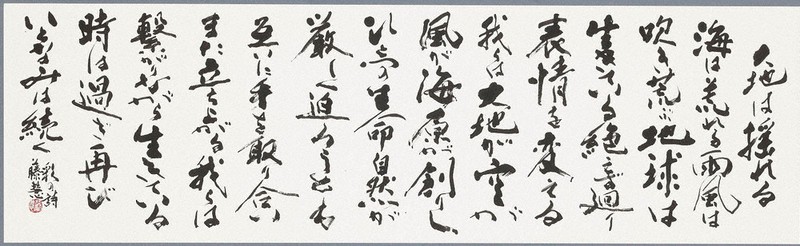 大地は揺れる
海は荒れる雨風は
吹き荒ぶ地球は
生きている絶えず廻り
表情を変える
我々は大地が空が
風が海原が創りし
ひとつの生命自然が
厳しく迫ろうとも
互いに手を取り合い
また立ち上がる我々は
繋がりながら生きている
時は過ぎ再び
いとなみは続く
彩の詩
藤